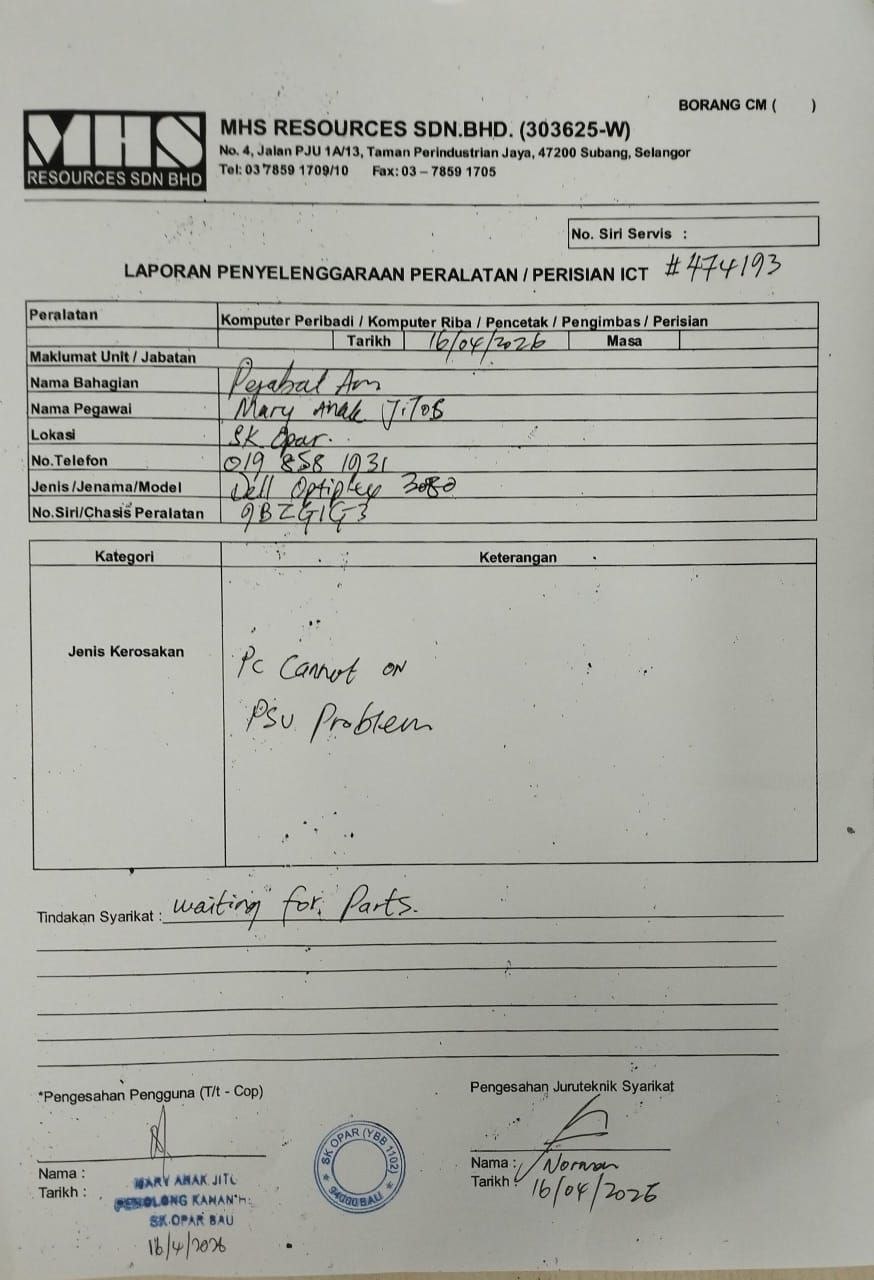 BORANG CM ( )
MHS
RESOURCES SDN BHD
MHS RESOURCES SDN.BHD. (303625-W)
No. 4, Jalan PJU 1A/13, Taman Perindustrian Jaya, 47200 Subang, Selangor
Tel: 03 7859 1709/10 Fax: 03 – 7859 1705
No. Siri Servis :
LAPORAN PENYELENGGARAAN PERALATAN / PERISIAN ICT #474193
Peralatan Komputer Peribadi / Komputer Riba / Pencetak / Pengimbas / Perisian
Tarikh 16/04/2026 Masa
Maklumat Unit / Jabatan
Nama Bahagian Pejabat Am
Nama Pegawai Mary Anak JiToB
Lokasi SK Opar.
No.Telefon 019 858 1931
Jenis/Jenama/Model Dell Optiplex 3080
No.Siri/Chasis Peralatan 9BZG1G3
Kategori Keterangan
Jenis Kerosakan
Pc Cannot ON
PSU Problem
Tindakan Syarikat : waiting for Parts.
*Pengesahan Pengguna (T/t - Cop) Pengesahan Juruteknik Syarikat
SK OPAR (YBB 1102)
94000 BAU
Nama : Nama : Norman
Tarikh : Tarikh : 16/04/2026
MARY ANAK
PENOLONG KANAN
SK.OPAR BAU
16/4/2026